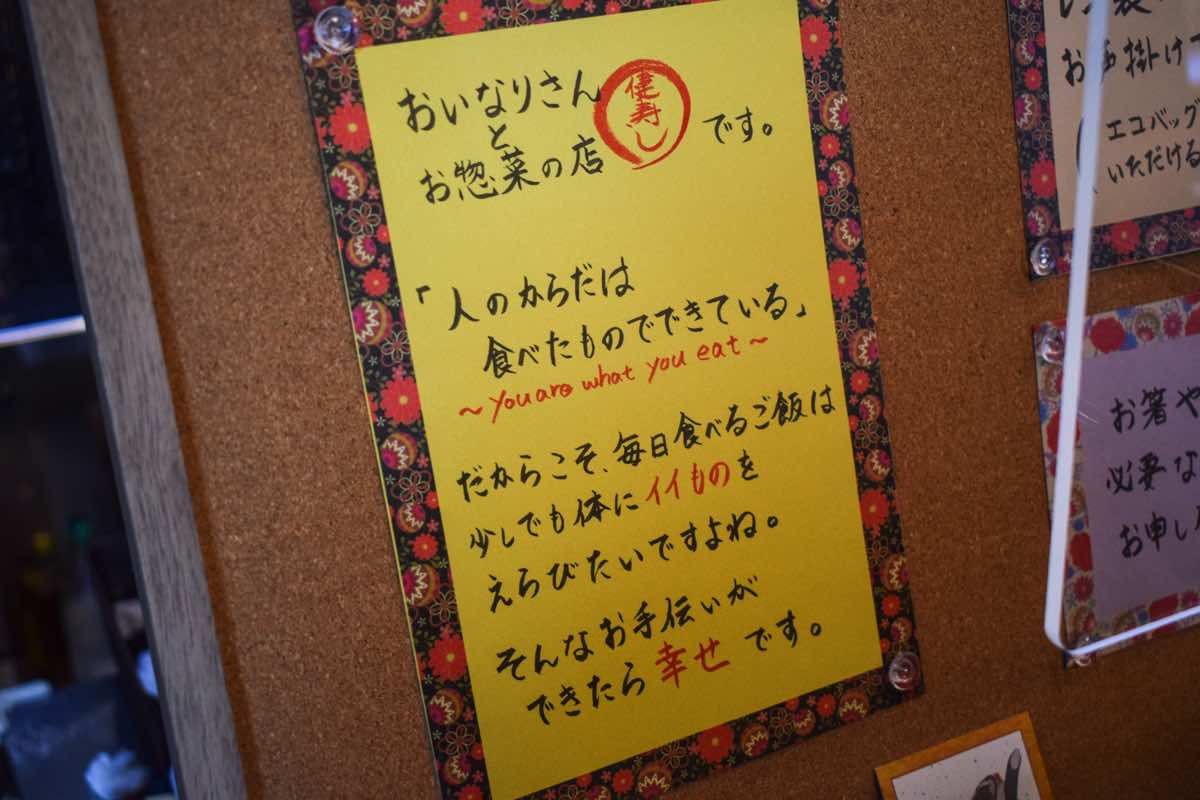 おいなりさん
と
お惣菜の店
健寿し
です。
「人のからだは
食べたものでできている」
~you are what you eat~
だからこそ、毎日食べるご飯は
少しでも体にイイものを
えらびたいですよね。
そんなお手伝いが
できたら幸せです。
お手掛け
エコバッグ
いただける
お箸や
必要な
お申し